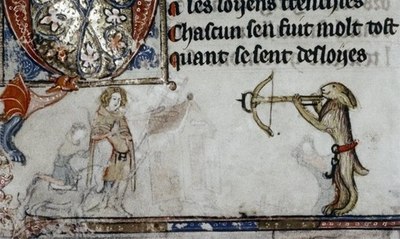 A les loyens trenchies
Chascun sen fuit molt tost
Quant se sent desloyes